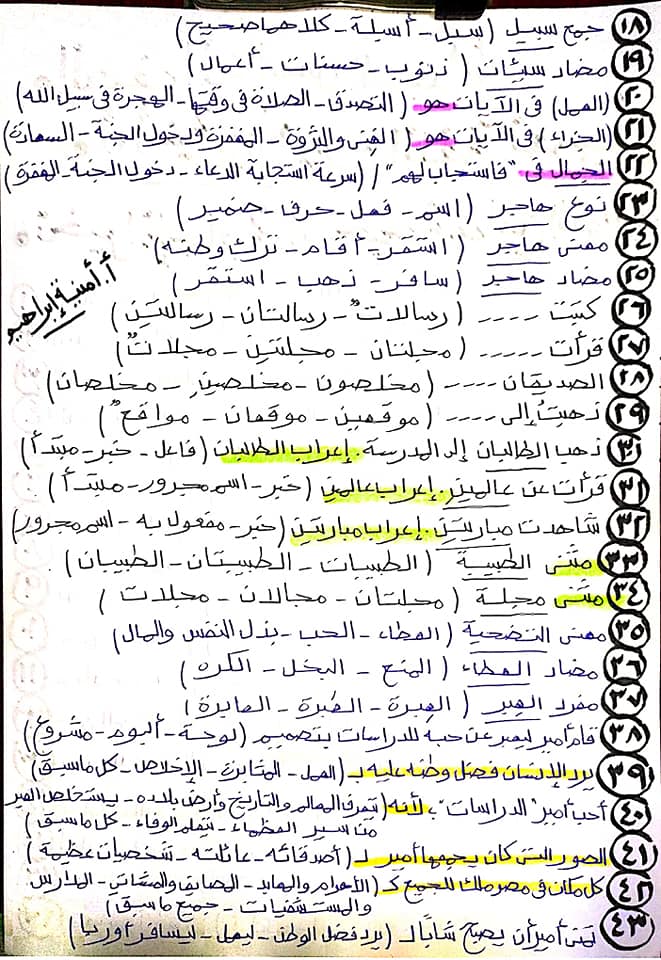 ١٨ جمع سبيل (سبل - أسبلة - كلاهما صحيح)
١٩ مضاد سيئات (ذنوب - حسنات - أعمال)
٢٠ (العمل) فى الآيات هو (التصدق - الصلاة فى وقتها - الهجرة فى سبيل الله)
٢١ (الجزاء) فى الآيات هو (الغنى والثروة - المغفرة ودخول الجنة - السعادة)
٢٢ الجمال فى "فاستجاب لهم" / (سرعة استجابة الدعاء - دخول الجنة - المغفرة)
٢٣ نوع هاجر (اسم - فعل - حرف - ضمير)
٢٤ معنى هاجر (استقر - أقام - ترك وطنه)
٢٥ مضاد هاجر (سافر - ذهب - استقر)
أ. أمنية إبراهيم
٢٦ كتبت ---- (رسالاتٌ - رسالتان - رسالتين)
٢٧ قرأت ----- (مجلتان - مجلتين - مجلاتٌ)
٢٨ الصديقان ---- (مخلصون - مخلصين - مخلصان)
٢٩ ذهبت إلى ---- (موقعين - موقعان - مواقعٌ)
٣٠ ذهب الطالبان إلى المدرسة. إعراب الطالبان (فاعل - خبر - مبتدأ)
٣١ قرأت عن عالمين. إعراب عالمين (خبر - اسم مجرور - مبتدأ)
٣٢ شاهدت مباريتين. إعراب مباريتين (خبر - مفعول به - اسم مجرور)
٣٣ مثنى الطبيبة (الطبيبات - الطبيبتان - الطبيبان)
٣٤ مثنى مجلة (مجلتان - مجالان - مجلات)
٣٥ معنى التضحية (العطاء - الحب - بذل النفس والمال)
٣٦ مضاد العطاء (المنع - البخل - الكره)
٣٧ مفرد العبر (العِبرة - العَبرة - العابرة)
٣٨ قام أمير ليعبر عن حبه للدراسات بتصميم (لوحة - ألبوم - مشروع)
٣٩ يرد الإنسان فضل وطنه عليه بـ (العمل - المثابرة - الإخلاص - كل ماسبق)
٤٠ أحب أمير "الدراسات"؛ لأنه (يعرف المعالم والتاريخ وأرض بلاده - يستخلص العبر
من سير العظماء - يتعلم الوفاء - كل ماسبق)
٤١ الصور التى كان يجمعها أمير لـ (أصدقائه - عائلته - شخصيات عظيمة)
٤٢ كل مكان فى مصر ملك للجميع كـ (الأهرام والمعابد - المصانع والمشاتى - المدارس
والمستشفيات - جميع ماسبق)
٤٣ تمنى أمير أن يصبح شابًا لـ (يرد فضل الوطن - ليعمل - ليسافر أوربا)